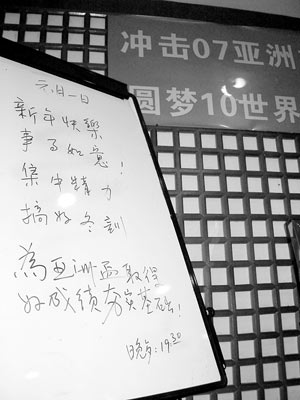 冲击07亚洲
圆梦10世界
元月一日
新年快樂
事事如意！
集中精力
搞好冬訓
為亚洲盃取得
好成绩夯实基础！
晚 19:30